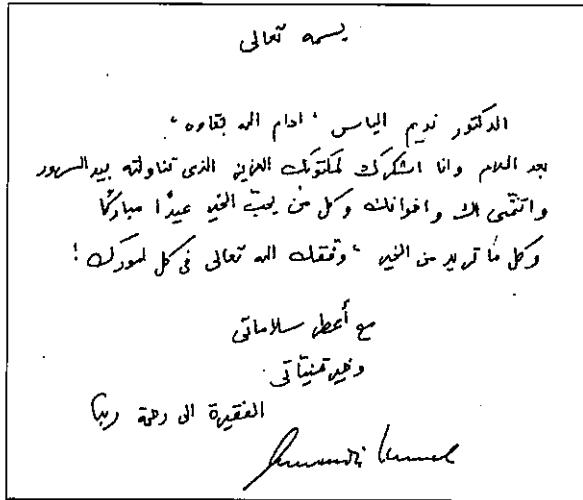 بسمه تعالى
الدكتور نديم الياس "ادام الله بقاءه"
بعد السلام وانا اشكرك لمكتوبك العزيز الذى تناولته بيد السرور
واتمنى لك و اخوانك وكل من يحبّ الخير عيدًا مباركًا
وكل ما تريد من الخير، وفقك الله تعالى فى كل امورك!
مع أعطر سلاماتى
وخير تمنياتى
الفقيرة الى رحمة ربها